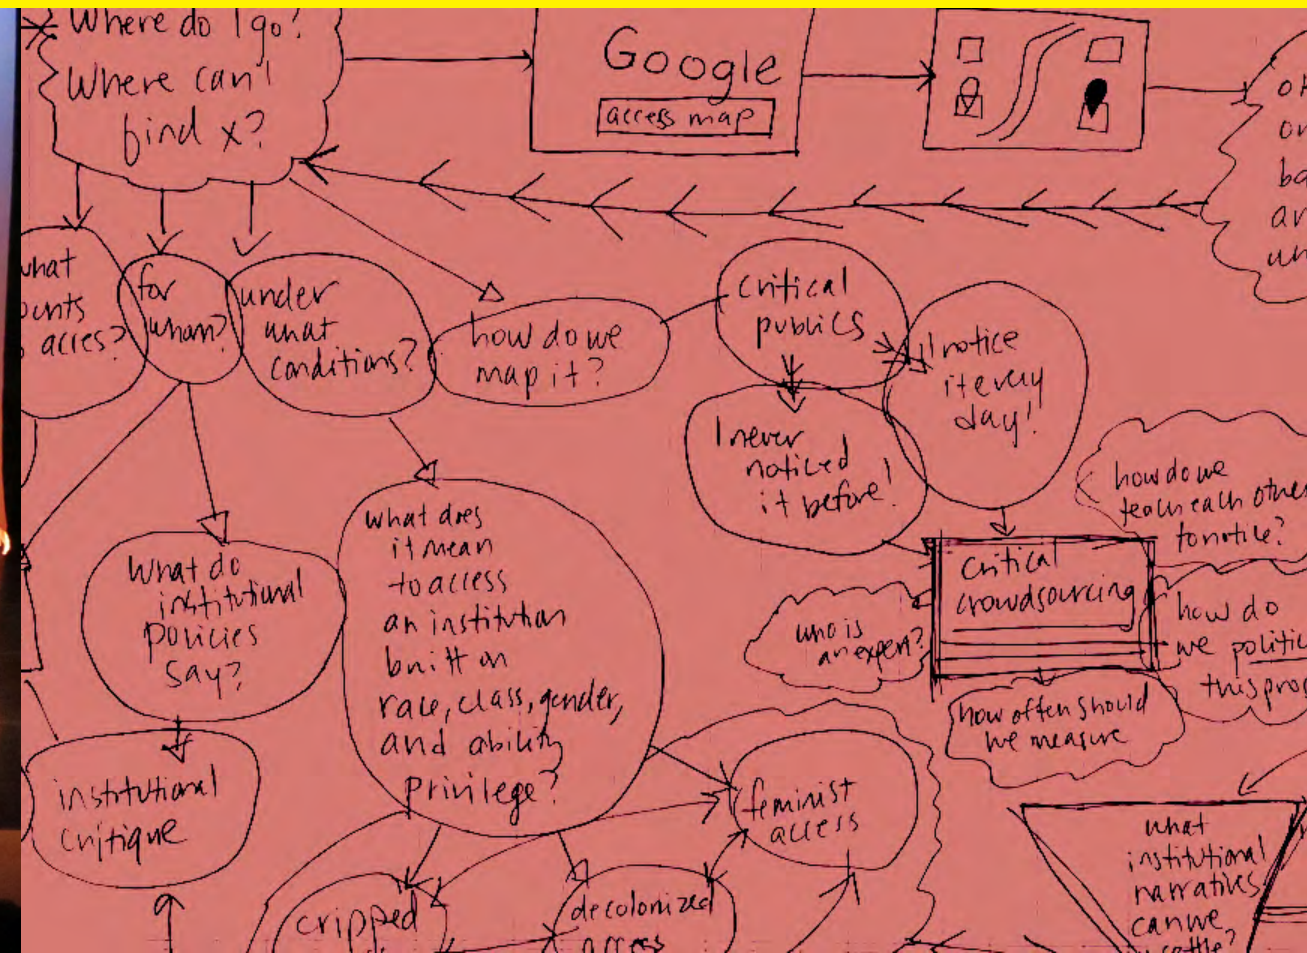 Where do I go?
Where can I
find x?
Google
access map
what
acces?
for
whom?
under
what
conditions?
how do we
map it?
critical
publics
I notice
it every
day!!
I never
noticed
it before!
how do we
teach each other
to notice?
critical
crowdsourcing
who is
an expert?
how do
we
this
how often should
we measure
What do
institutional
policies
say?
what does
it mean
to access
an institution
built on
race, class, gender,
and ability
privilege?
institutional
critique
feminist
access
cripped
decolonized
access
what
institutional
narratives
can we